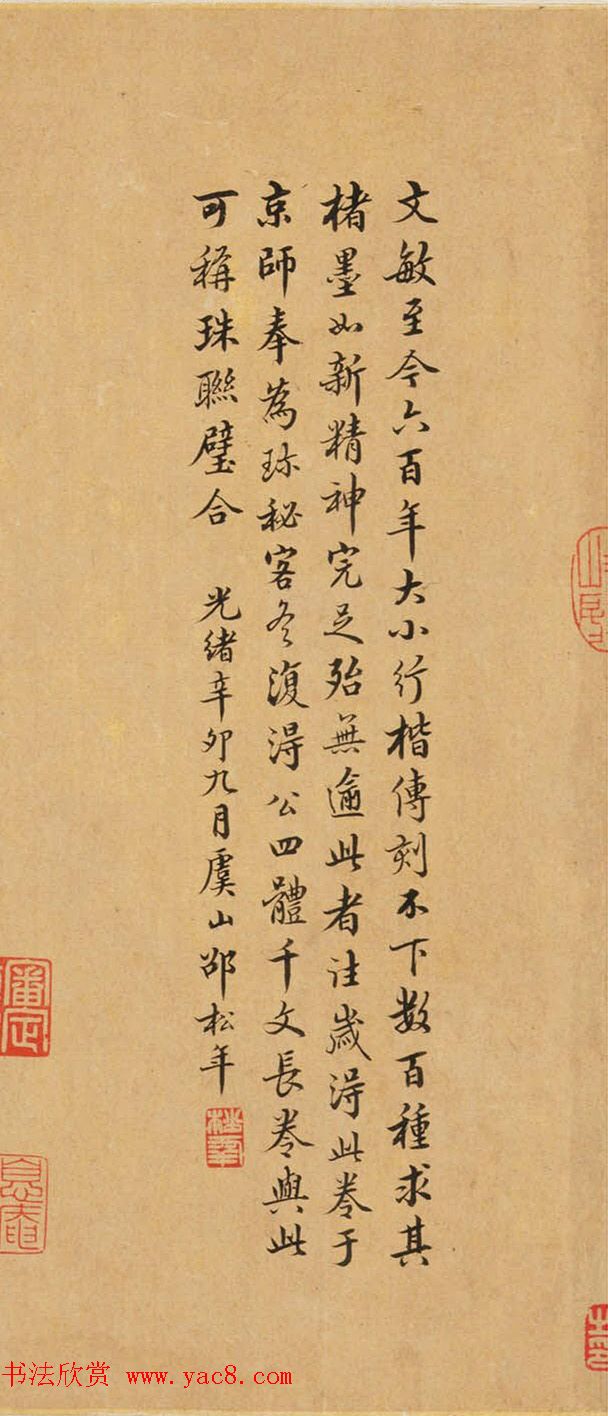 文敏至今六百年大小行楷傳刻不下數百種求其
楮墨如新精神完足殆無逾此者往歲得此卷于
京師奉為珎秘客冬復得公四體千文長卷與此
可稱珠聯璧合
光緒辛卯九月虞山邵松年
松年
審定
息盦
书法欣赏 www.yac8.com